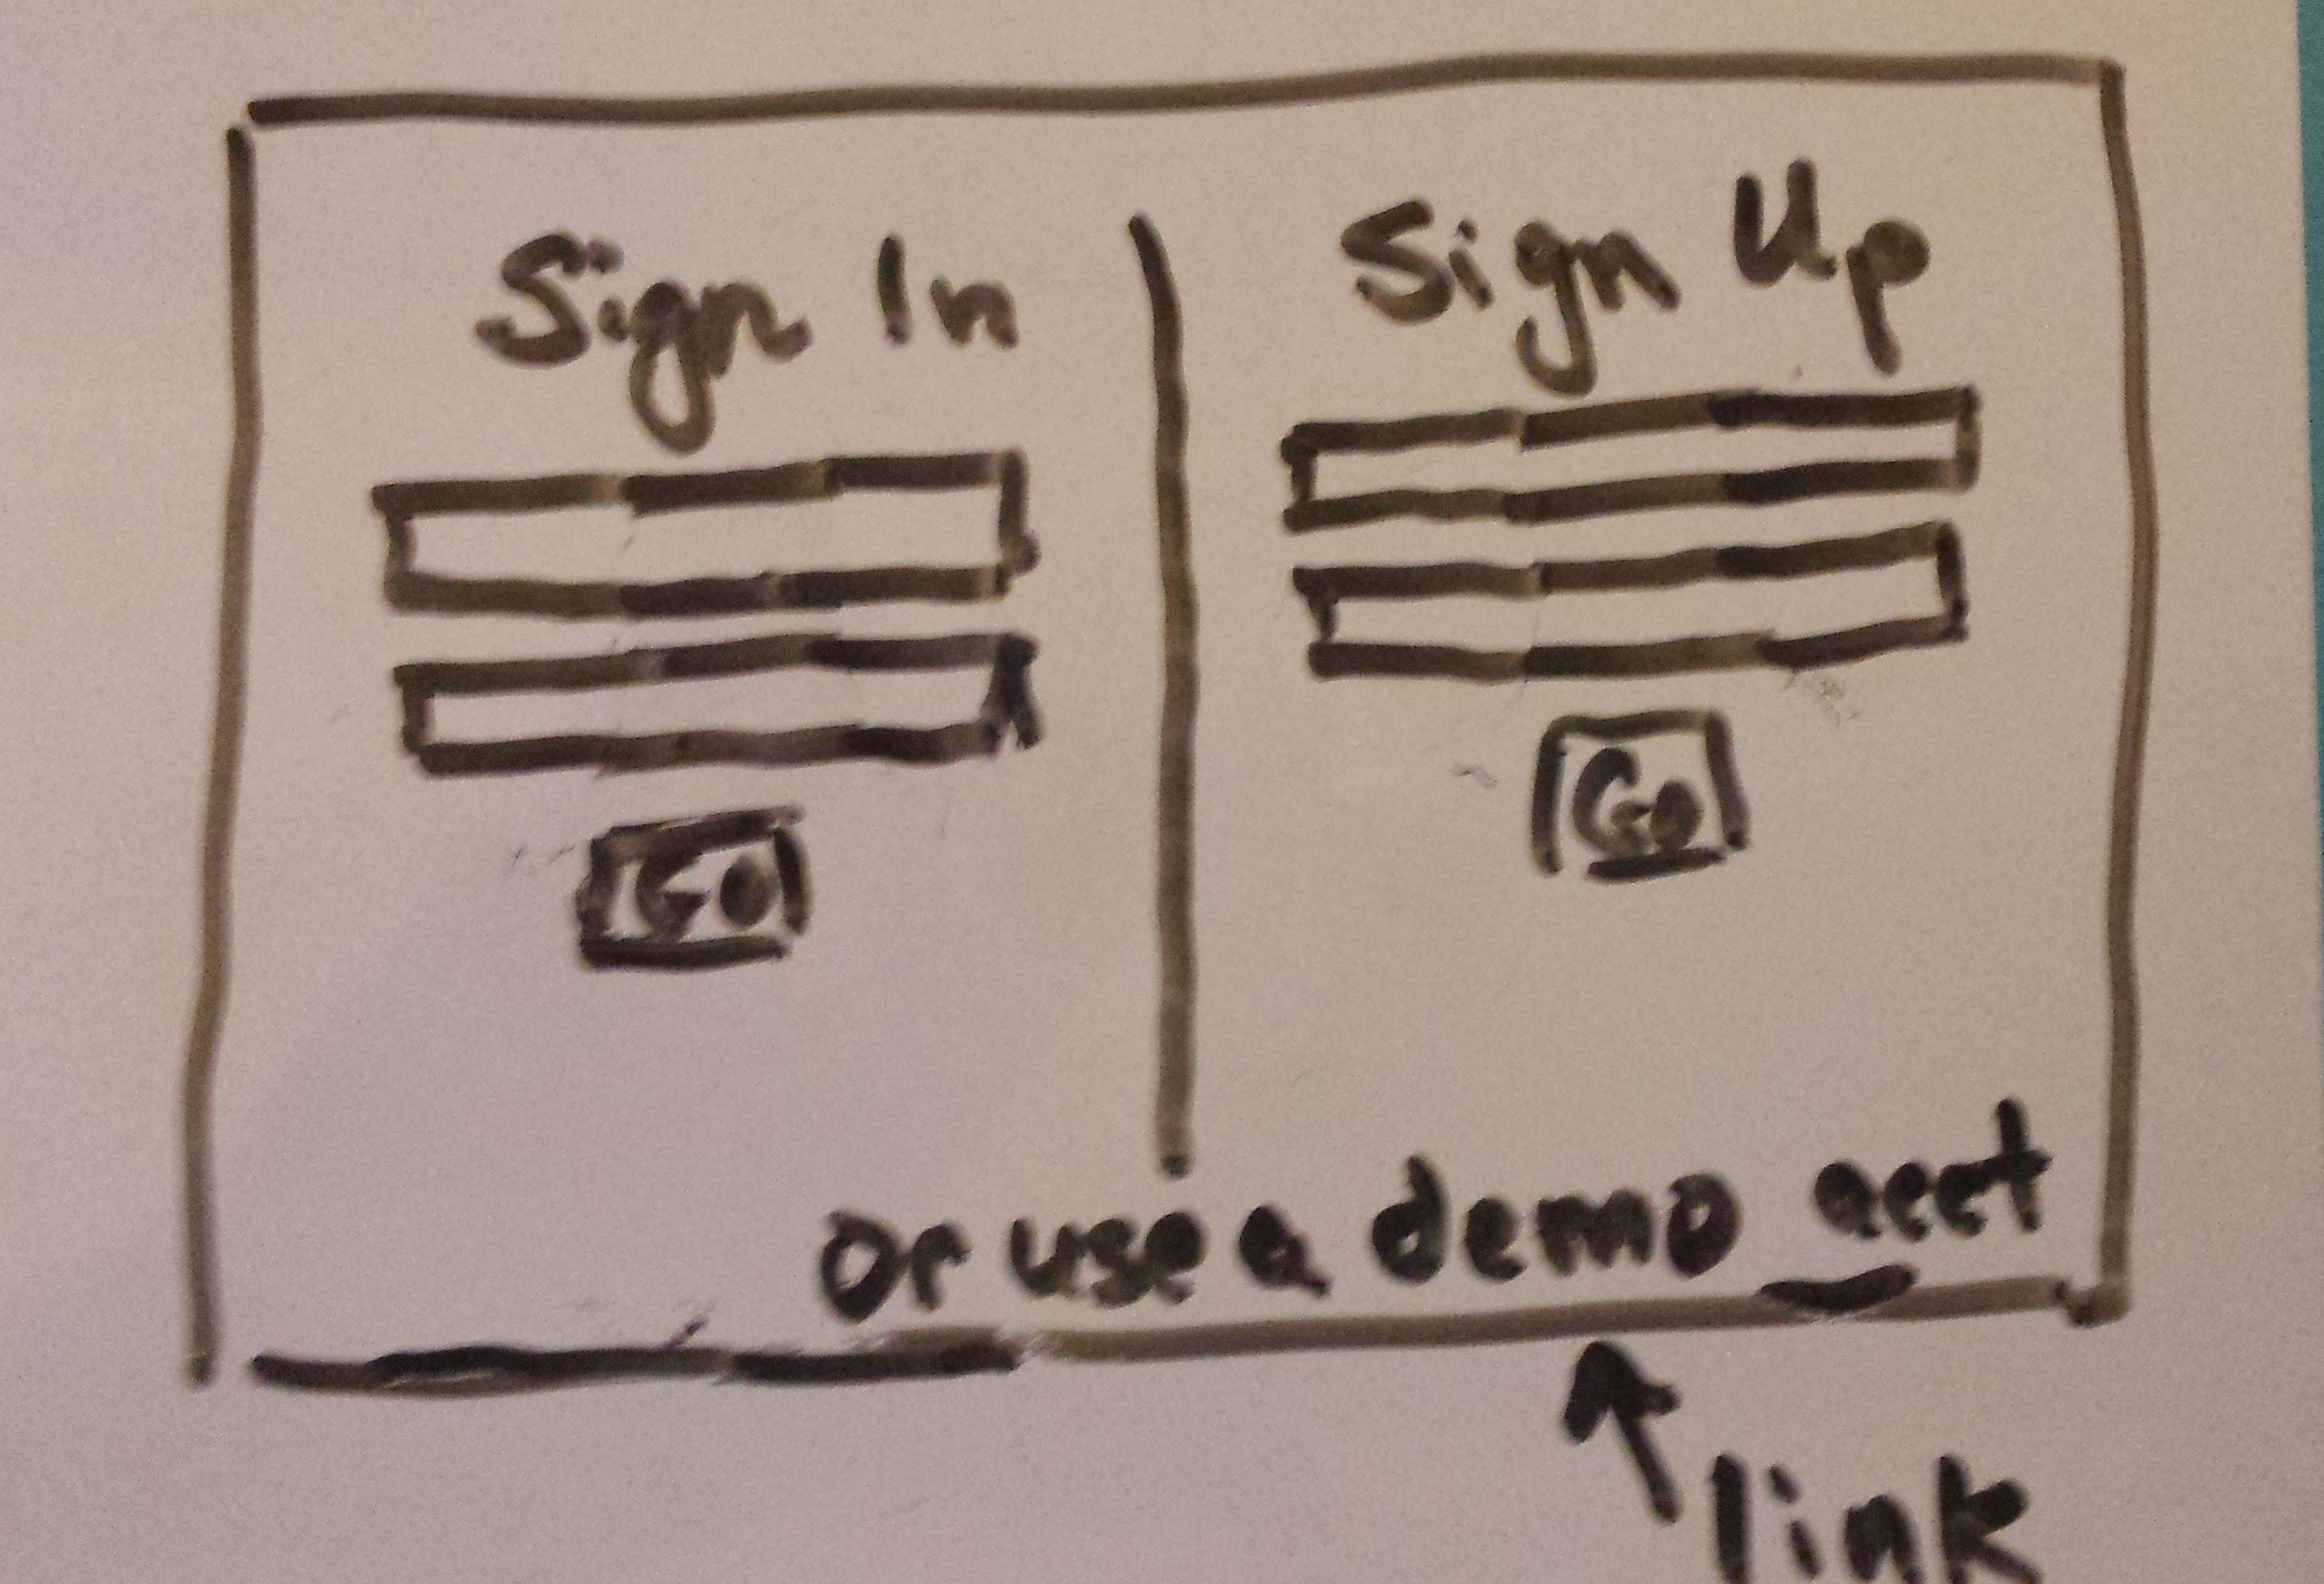 Sign In
Go
Sign Up
Go
or use a demo acct
link